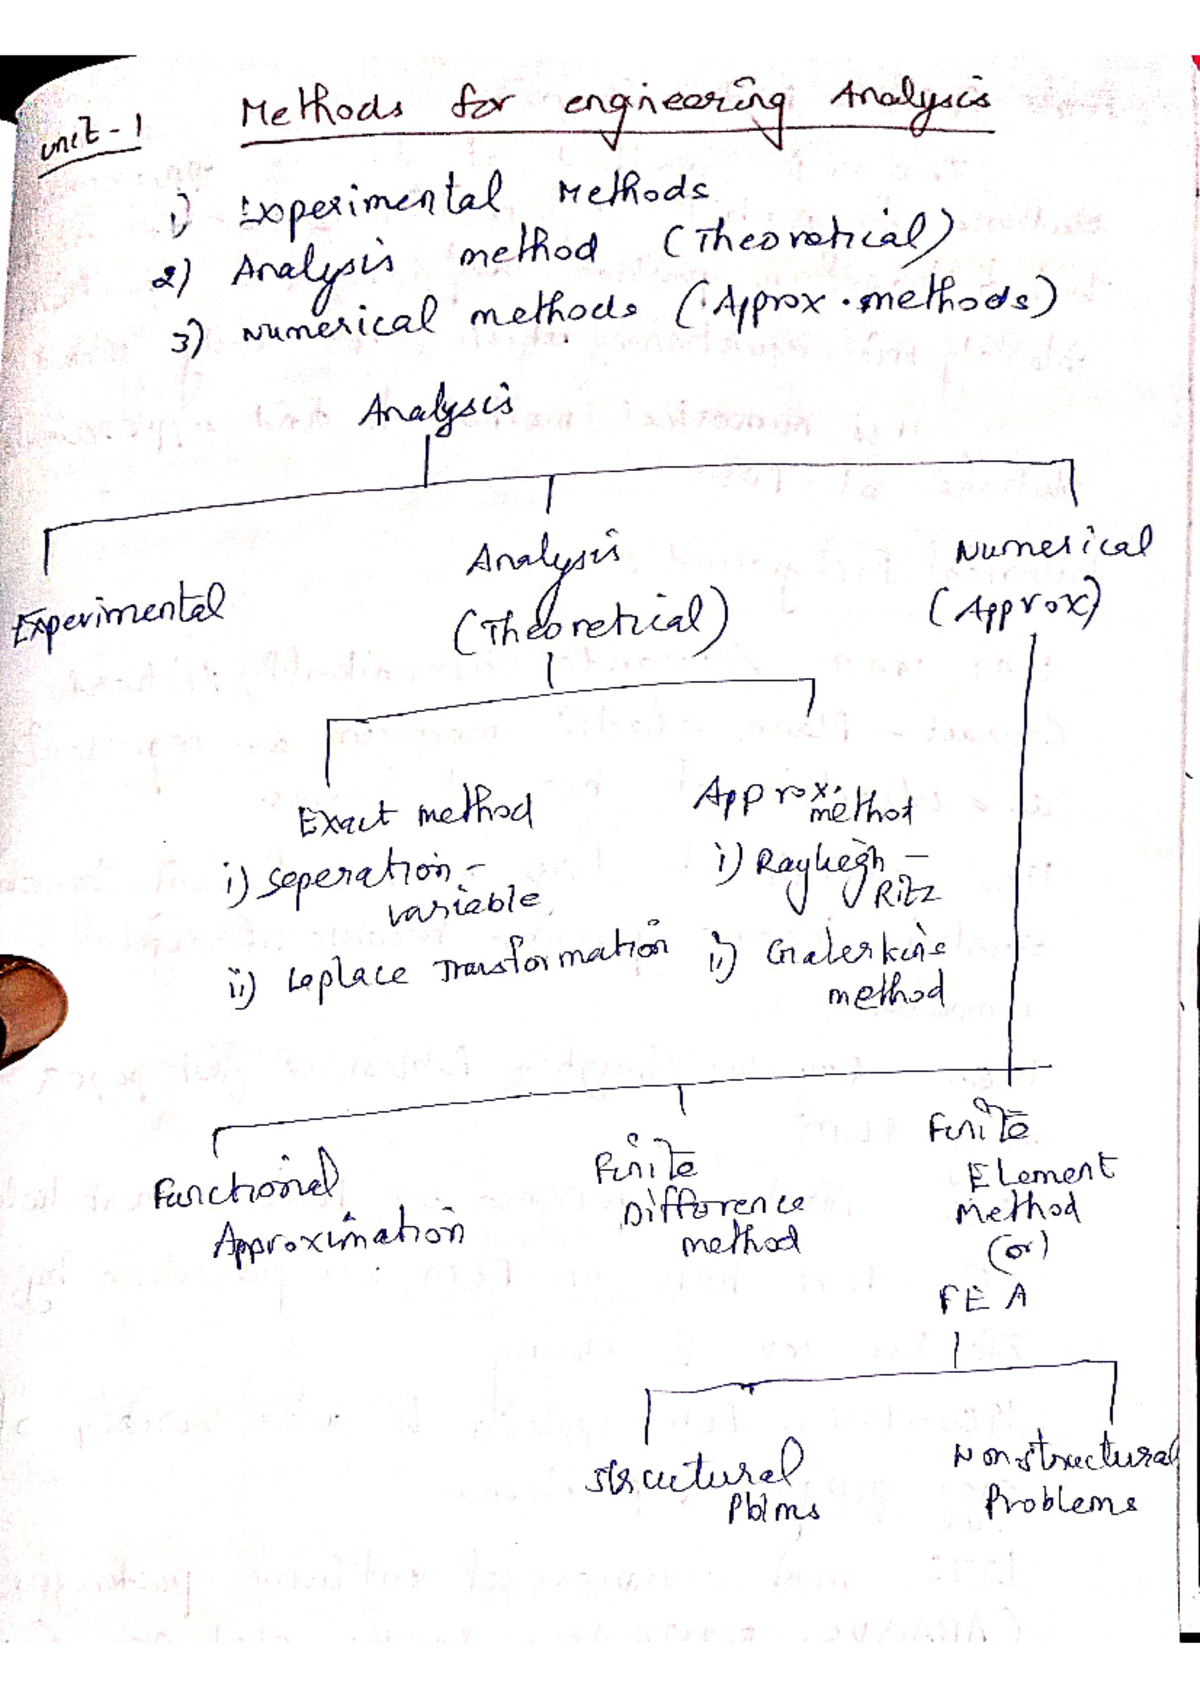 unit - 1
Methods for engineering Analysis
1) Experimental Methods
2) Analysis method (Theoretical)
3) Numerical methods (Approx. methods)
Analysis
Experimental
Analysis
(Theoretical)
Numerical
(Approx)
Exact method
i) Seperation -
variable
ii) Laplace Transformation
Approx.
method
i) Rayleigh -
Ritz
ii) Galerkin's
method
Functional
Approximation
Finite
Difference
method
Finite
Element
Method
(or)
FEA
Structural
Pblms
Nonstructural
Problems